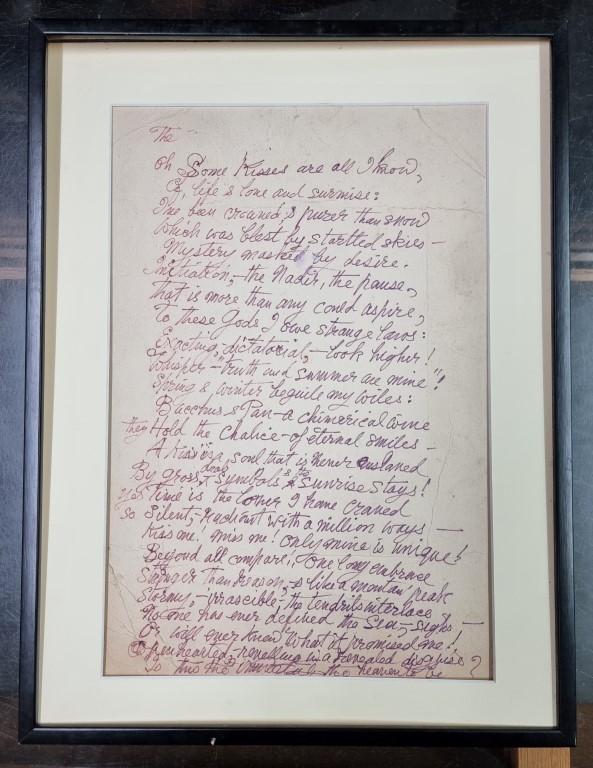 The
oh Some Kisses are all I know,
Of, life's love and surmise:
I've been crowned, & purer than snow
Which was blest by startled skies –
Mystery masked by desire.
Initiation, – the Nadir, the pause,
that is more than any could aspire,
to these Gods I owe strange laws:
Exacting, dictatorial, – look higher!
Whisper – "truth and summer are mine"!
Spring & winter beguile my wiles:
Bacchus & Pan – a chimerical wine
they Hold the Chalice – of eternal smiles –
A Kiss is a soul that is never enslaved
By gross symbols & Sunrise stays!
Time is the lover I have craved
so silent, – with a million ways —
Kiss me! miss me! only mine is unique!
Beyond all compare, – one long embrace
Stronger than reason, – & like a peak
Stormy, – irrascible – the tendrils interlace
No one has ever defined the Sea, – sighs –
Or will ever know what it promised me!
Open hearted – revelling in a revealed disguise?
the heaven to be